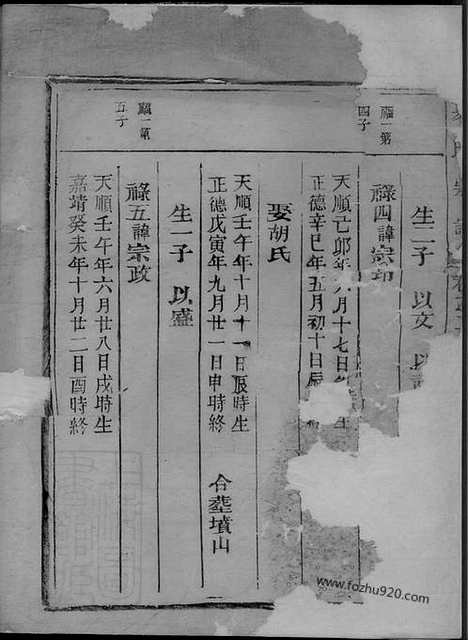 生二子 以文 以
福一第四子
祿四諱宗
天順己卯年八月十七日 生
正德辛巳年五月初十日辰
娶胡氏
天順壬午年十月十一日辰時生
正德戊寅年九月廿一日申時終 合塟墳山
生一子 以盛
福一第五子
祿五諱宗政
天順壬午年六月廿八日戌時生
嘉靖癸未年十月廿二日酉時終
www.fozhu920.com